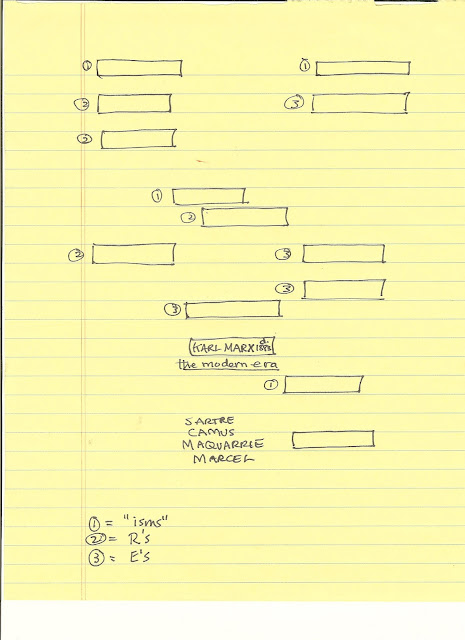 ① ①
② ③
②
①
②
② ③
③
③
KARL MARX d. 1883
the modern era
①
SARTRE
CAMUS
MAQUARRIE
MARCEL
① = "isms"
② = R's
③ = E's